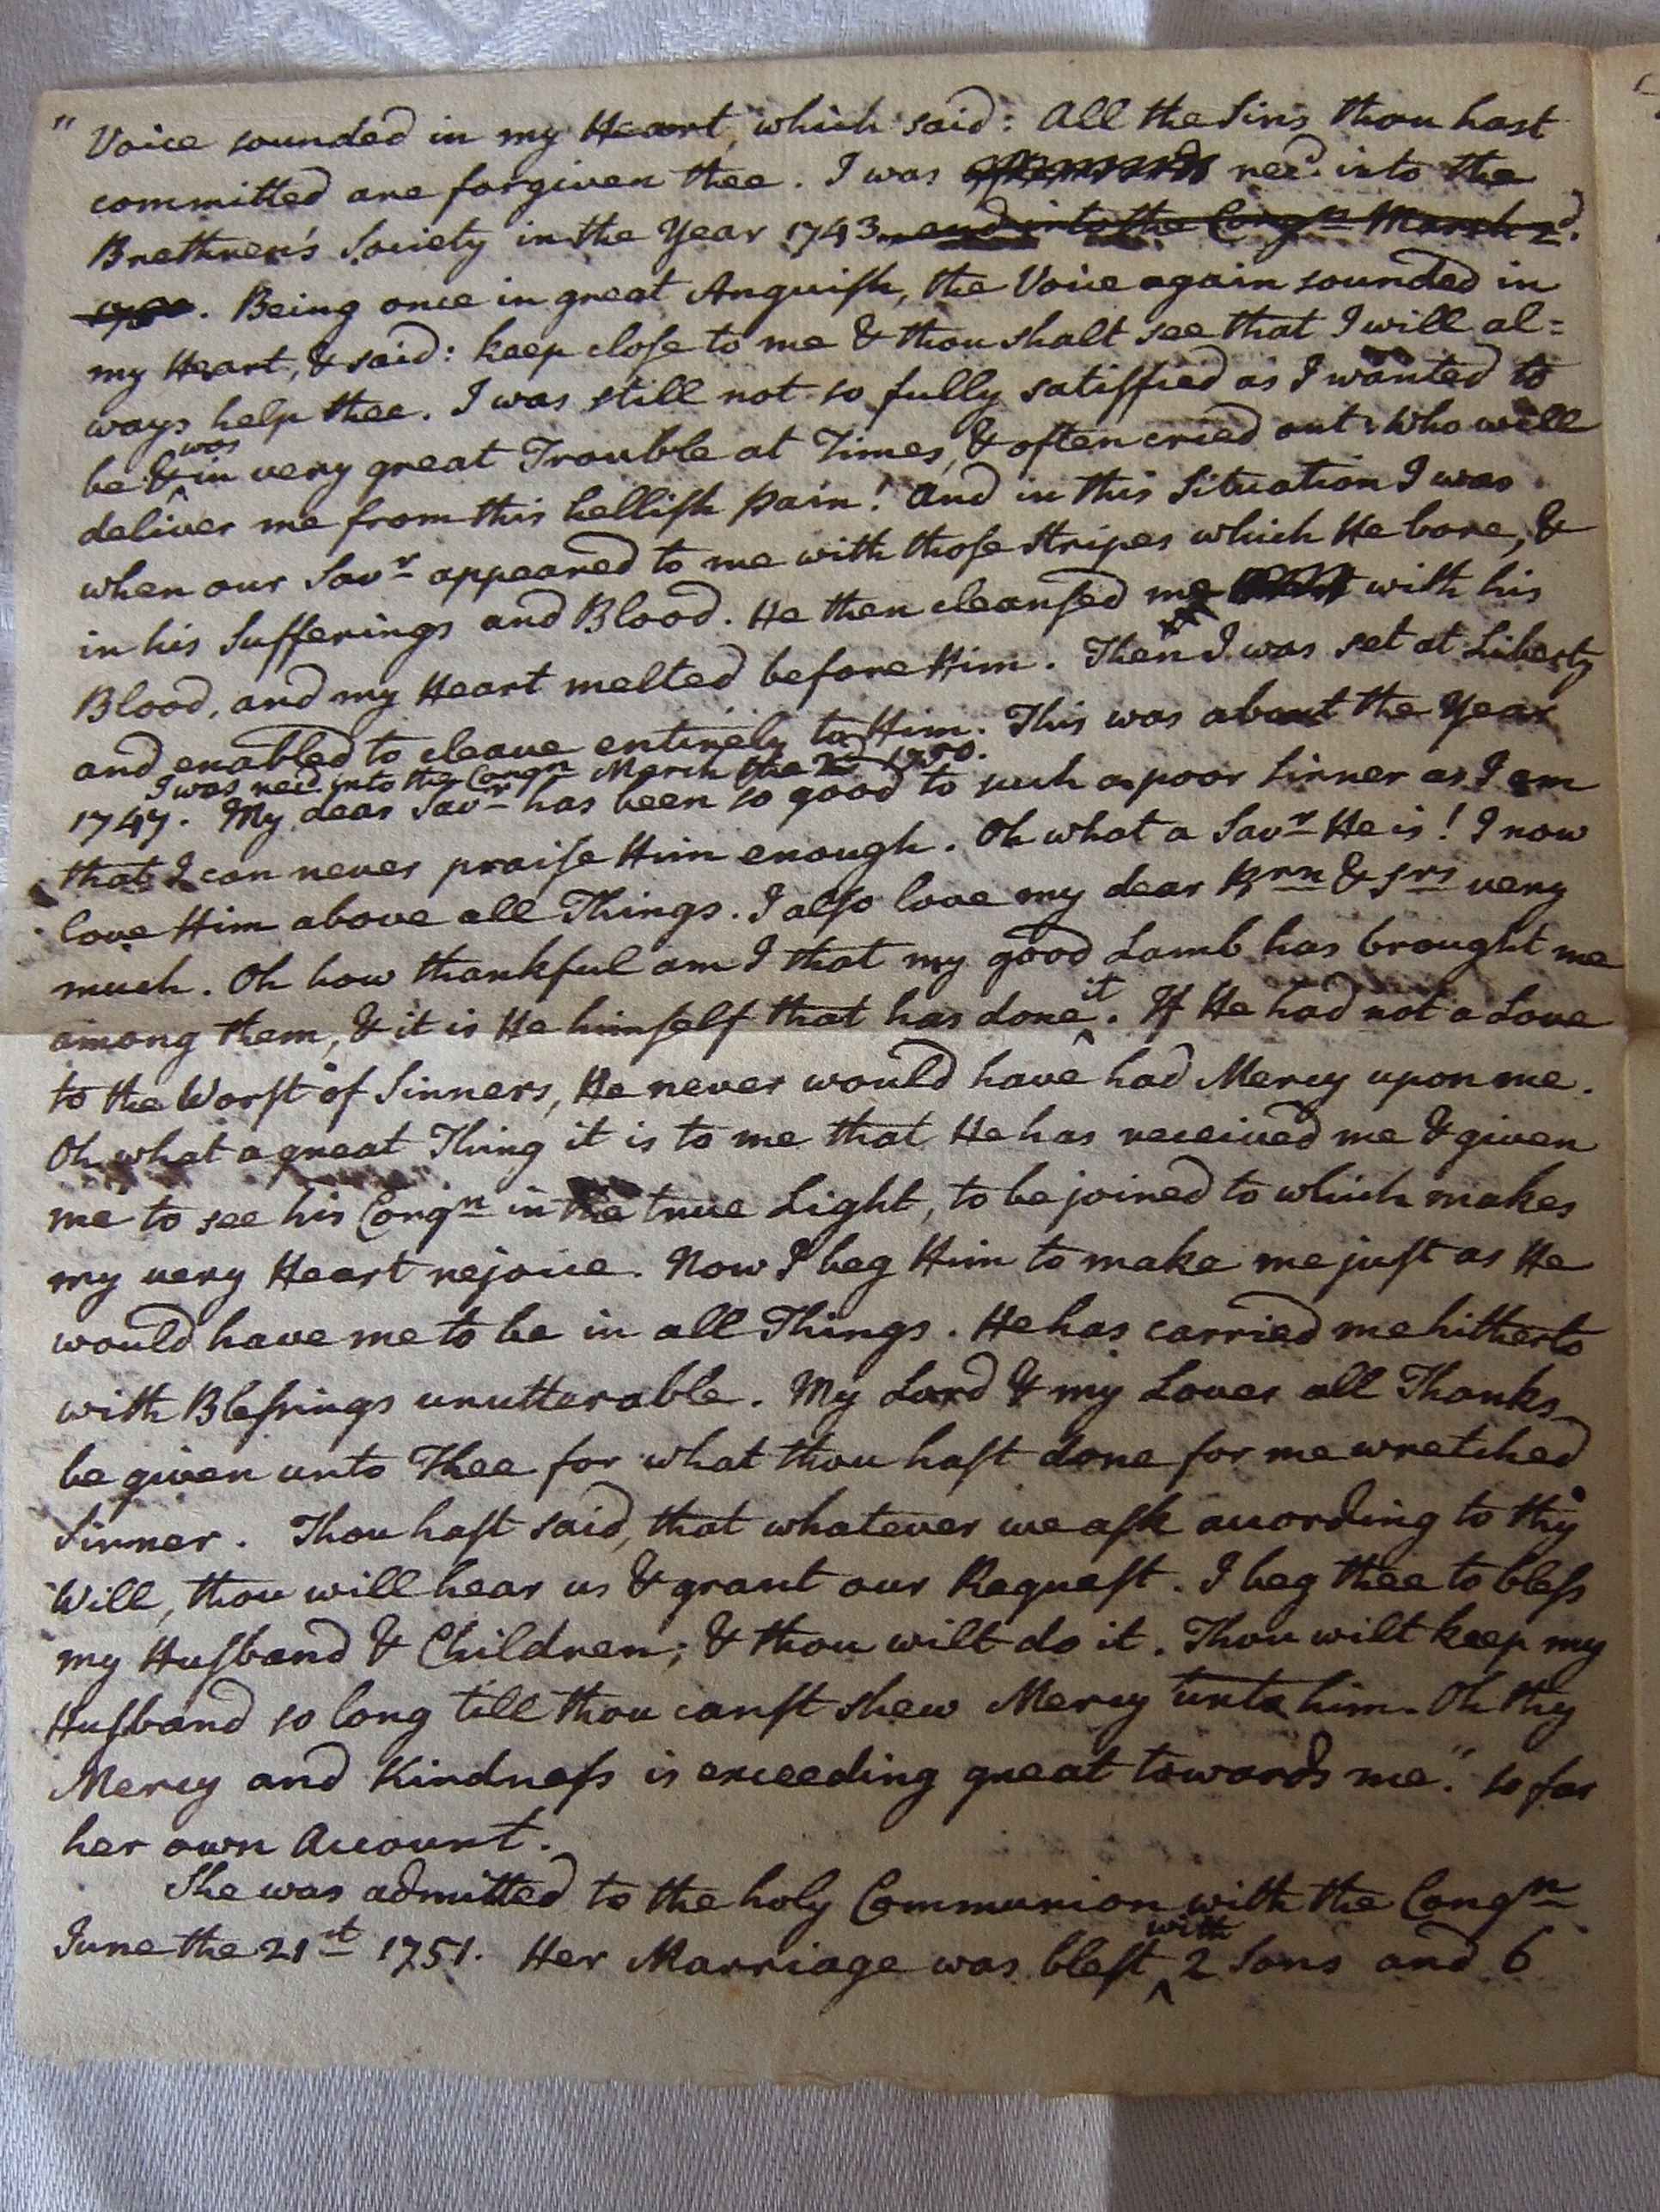 " Voice sounded in my Heart, which said: All the Sins thou hast
committed are forgiven thee. I was afterwards rec.d into the
Brethren's Society in the Year 1743. and into the Congn March 2d.
1750. Being once in great Anguish, the Voice again sounded in
my Heart, & said: keep close to me & thou shalt see that I will al=
ways help thee. I was still not so fully satisfied as I wanted to
was
be & ^ in very great Trouble at Times, & often cried out: Who will
deliver me from this hellish pain! And in this Situation I was
when our Savr appeared to me with those stripes which He bore, &
in his Sufferings and Blood. He then cleansed me with his
Blood, and my Heart melted before Him. Then I was set at Liberty
and enabled to cleave entirely to Him. This was about the Year
I was rec.d into the Congn March the 2d 1750.
1747. My dear Savr has been so good to such a poor Sinner as I am
that I can never praise Him enough. Oh what a Savr He is! I now
love Him above all Things. I also love my dear Brn & Srs very
much. Oh how thankful am I that my good Lamb has brought me
it
among them, & it is He himself that has done ^. If He had not a Love
to the Worst of Sinners, He never would have had Mercy upon me.
Oh what a great Thing it is to me that He has received me & given
me to see his Congn in the true Light, to be joined to which makes
my very Heart rejoice. Now I beg Him to make me just as He
would have me to be in all Things. He has carried me hitherto
with Blessings unutterable. My Lord & my Lover all Thanks
be given unto Thee for what thou hast done for me wretched
Sinner. Thou hast said, that whatever we ask according to thy
Will, thou will hear us & grant our Request. I beg thee to bless
my Husband & Children; & thou wilt do it. Thou wilt keep my
Husband so long till thou canst shew Mercy unto him. Oh thy
Mercy and Kindness is exceeding great towards me." so far
her own Account.
She was admitted to the holy Communion with the Congn
with
June the 21st 1751. Her Marriage was blest ^ 2 Sons and 6